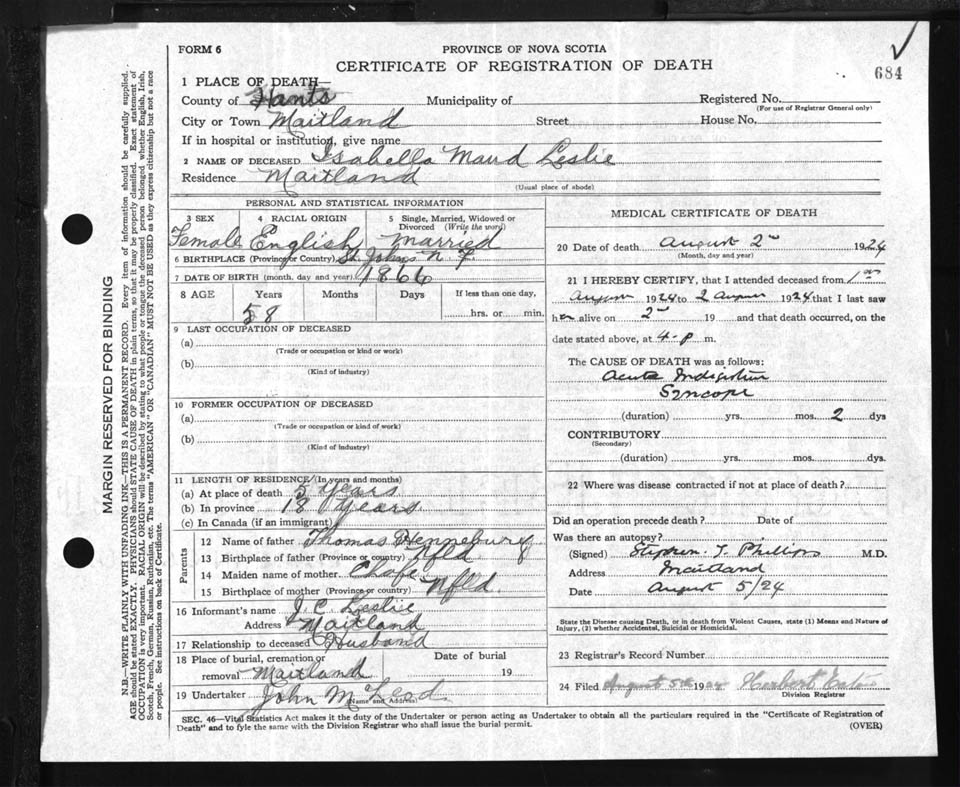 FORM 6
PROVINCE OF NOVA SCOTIA
CERTIFICATE OF REGISTRATION OF DEATH
684
1 PLACE OF DEATH—
County of Hants Municipality of Registered No.
(For use of Registrar General only)
City or Town Maitland Street House No.
If in hospital or institution, give name
2 NAME OF DECEASED Isabella Maud Leslie
Residence Maitland
(Usual place of abode)
PERSONAL AND STATISTICAL INFORMATION
3 SEX 4 RACIAL ORIGIN 5 Single, Married, Widowed or Divorced (Write the word)
Female English Married
6 BIRTHPLACE (Province or Country) St. Johns N. F.
7 DATE OF BIRTH (month, day and year) 1866
8 AGE Years Months Days If less than one day,
58 hrs. or min.
9 LAST OCCUPATION OF DECEASED
(a)
(Trade or occupation or kind or work)
(b)
(Kind of industry)
10 FORMER OCCUPATION OF DECEASED
(a)
(Trade or occupation or kind of work)
(b)
(Kind of industry)
11 LENGTH OF RESIDENCE (In years and months)
(a) At place of death 5 Years
(b) In province 18 Years
(c) In Canada (if an immigrant)
Parents
12 Name of father Thomas Hennebury
13 Birthplace of father (Province or country) Nfld
14 Maiden name of mother Chafe
15 Birthplace of mother (Province or country) Nfld.
16 Informant's name J. C. Leslie
Address Maitland
17 Relationship to deceased Husband
18 Place of burial, cremation or removal Maitland Date of burial 19
19 Undertaker John McLeod
(Name and Address)
MEDICAL CERTIFICATE OF DEATH
20 Date of death August 2nd 1924
(Month, day and year)
21 I HEREBY CERTIFY, that I attended deceased from 1st
August 1924 to 2 August 1924 that I last saw
her alive on 2nd 19 and that death occurred, on the
date stated above, at 4 p m.
The CAUSE OF DEATH was as follows:
Acute Indigestion
Syncope
(duration) yrs. mos. 2 dys
CONTRIBUTORY
(Secondary)
(duration) yrs. mos. dys.
22 Where was disease contracted if not at place of death?
Did an operation precede death? Date of
Was there an autopsy?
(Signed) Stephen T Phillips M.D.
Address Maitland
Date August 5/24
State the Disease causing Death, or in death from Violent Causes, state (1) Means and Nature of
Injury, (2) whether Accidental, Suicidal or Homicidal.
23 Registrar's Record Number
24 Filed August 5th 1924 Herbert
Division Registrar
SEC. 46—Vital Statistics Act makes it the duty of the Undertaker or person acting as Undertaker to obtain all the particulars required in the "Certificate of Registration of
Death" and to fyle the same with the Division Registrar who shall issue the burial permit.
(OVER)
MARGIN RESERVED FOR BINDING
N.B.—WRITE PLAINLY WITH UNFADING INK—THIS IS A PERMANENT RECORD. Every item of information should be carefully supplied.
AGE should be stated EXACTLY. PHYSICIANS should STATE CAUSE OF DEATH in plain terms, so that it may be properly classified. Exact statement of
OCCUPATION is very important. RACIAL ORIGIN will be described by stating to what people or tongue the deceased person belonged whether English, Irish,
Scotch, French, German, Russian, Ruthenian, etc. The terms "AMERICAN" OR "CANADIAN" MUST NOT BE USED as they express citizenship but not a race
or people. See instructions on back of Certificate.